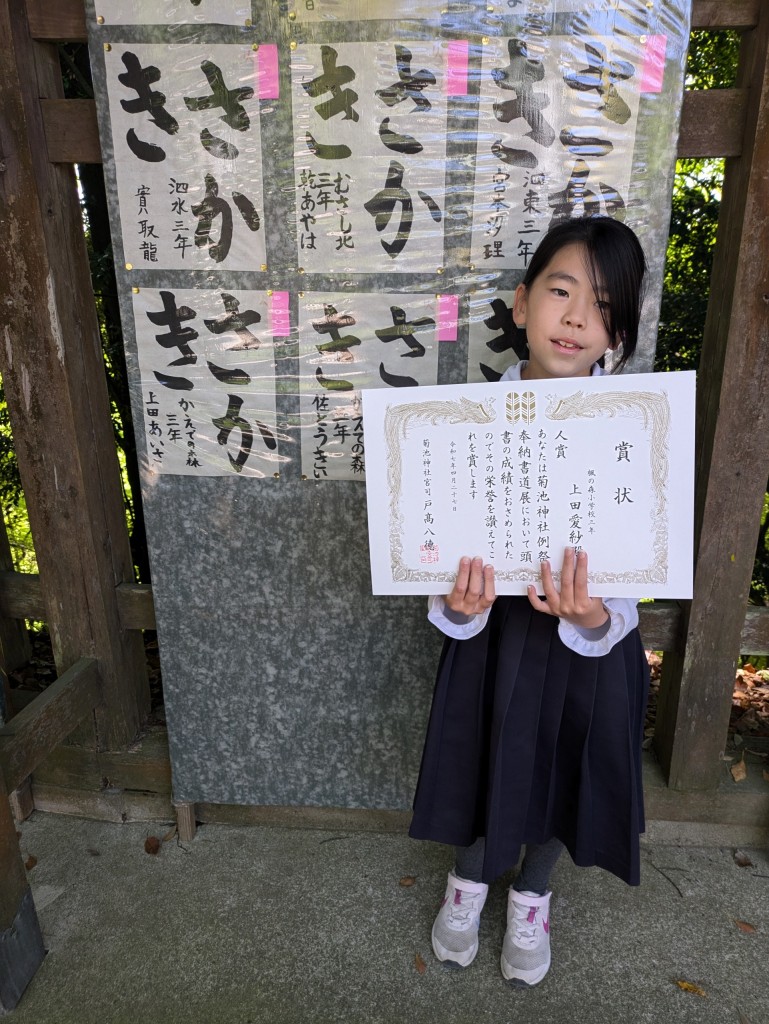 さか
き
泗水三年
實取龍
さか
き
むさし北
三年
乾あやは
さか
き
泗東三年
宮本汐理
さか
き
かえでの森
三年
上田あいさ
さ
き
えでの森
年
佐とうきい
賞状
楓の森小学校三年
上田愛紗殿
人賞
あなたは菊池神社例祭
奉納書道展において頭
書の成績をおさめられた
のでその栄誉を讃えてこ
れを賞します
令和七年四月二十七日
菊池神社宮司 戸高八徳